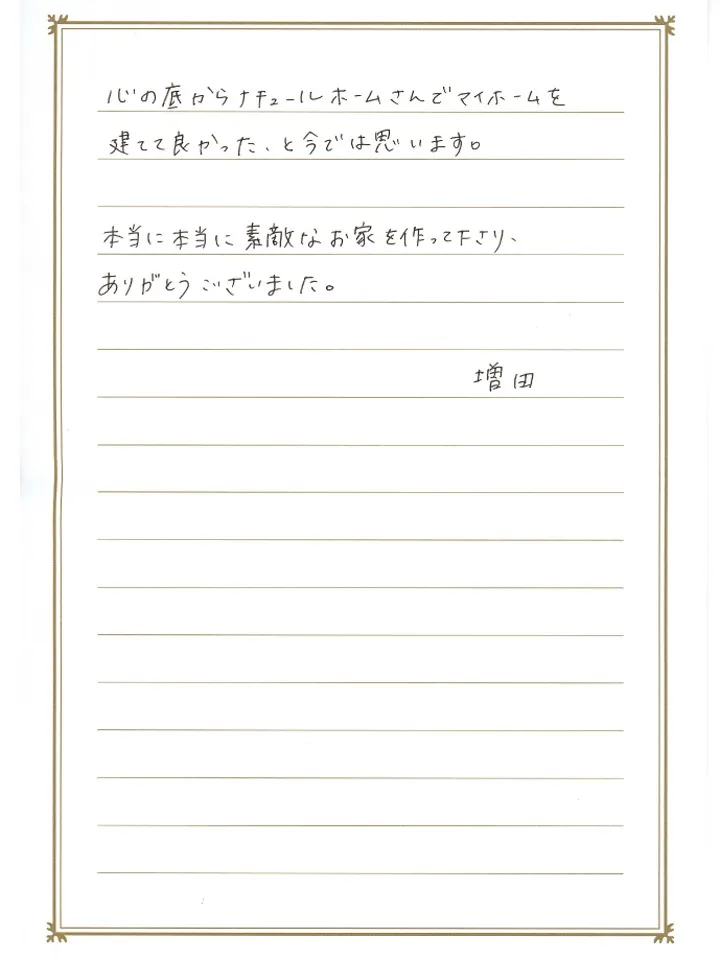 心の底からナチュールホームさんでマイホームを
建てて良かった、と今では思います。
本当に本当に素敵なお家を作って下さり、
ありがとうございました。
増田